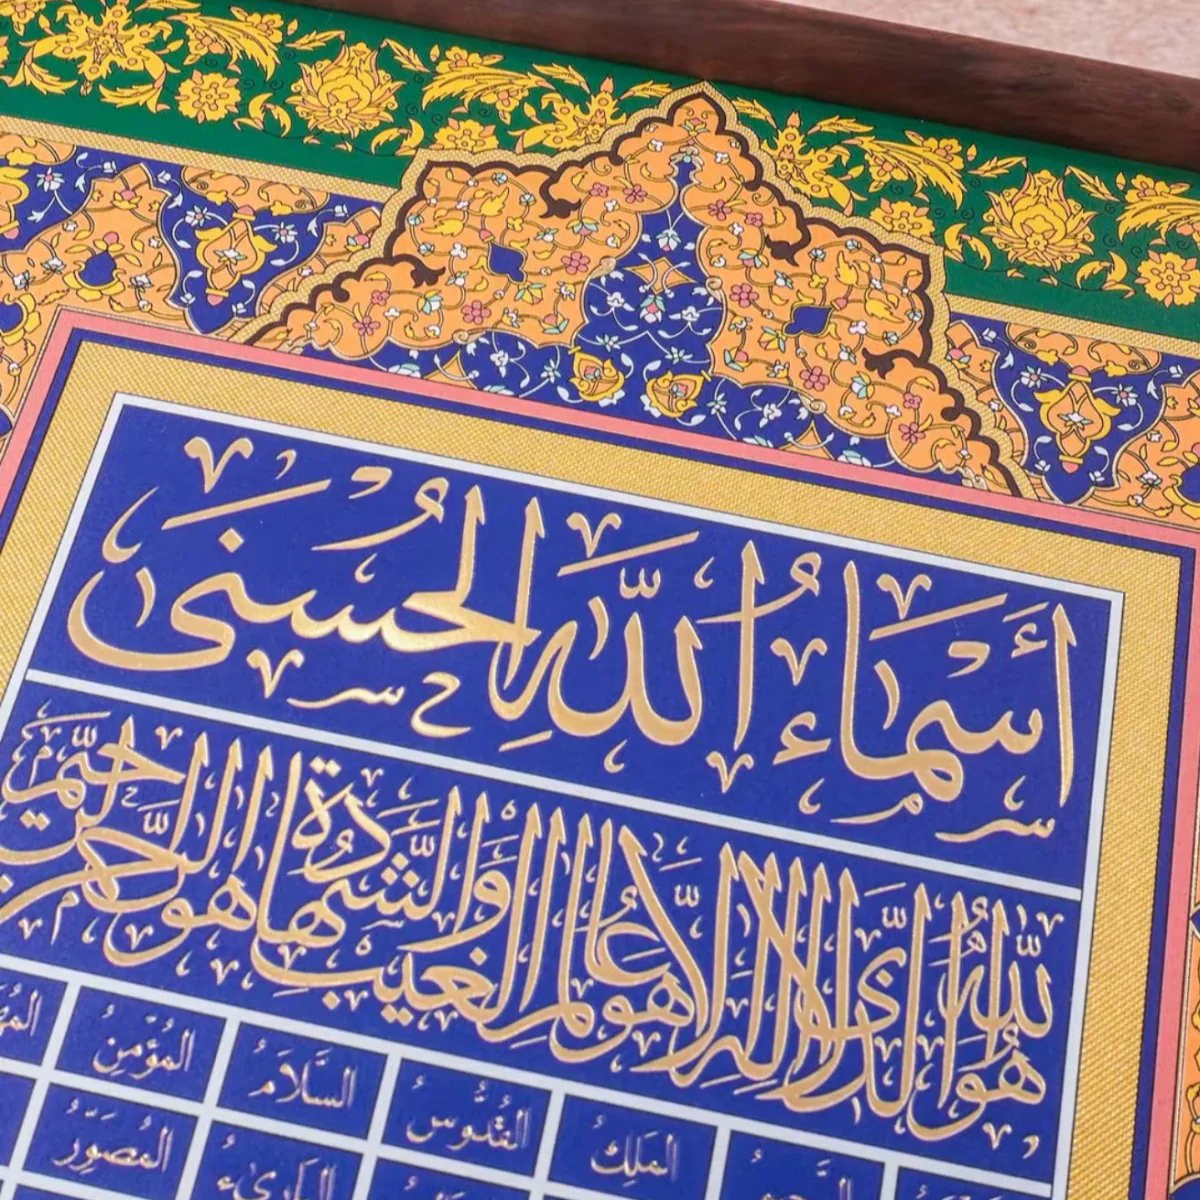 أَسْمَاءُ اللَّهِ الْحُسْنَى
هُوَ اللَّهُ الَّذِي لَا إِلَهَ إِلَّا هُوَ عَالِمُ الْغَيْبِ وَالشَّهَادَةِ هُوَ الرَّحْمَنُ الرَّحِيمُ
المَلِكُ القُدُّوسُ السَّلَامُ المُؤْمِنُ
البَارِىءُ المُصَوِّرُ